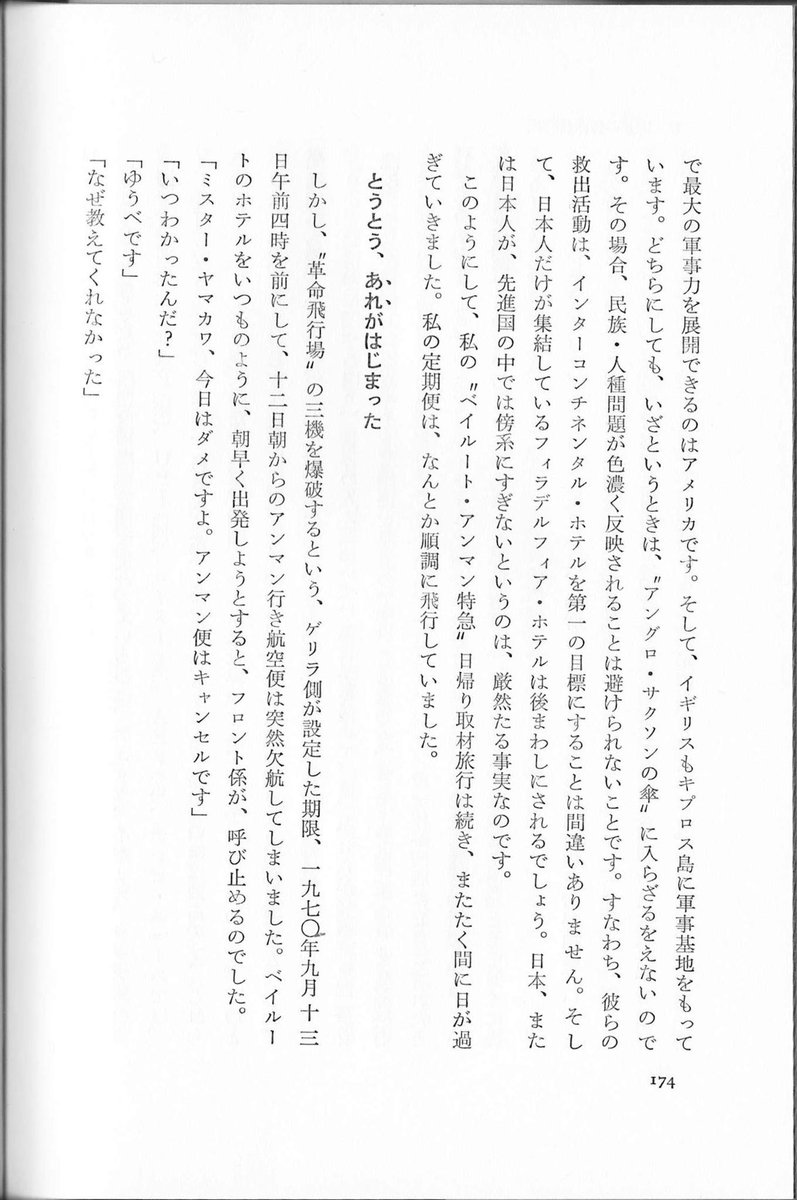 で最大の軍事力を展開できるのはアメリカです。そして、イギリスもキプロス島に軍事基地をもって
います。どちらにしても、いざというときは、〝アングロ・サクソンの傘〟に入らざるをえないので
す。その場合、民族・人種問題が色濃く反映されることは避けられないことです。すなわち、彼らの
救出活動は、インターコンチネンタル・ホテルを第一の目標にすることは間違いありません。そし
て、日本人だけが集結しているフィラデルフィア・ホテルは後まわしにされるでしょう。日本、また
は日本人が、先進国の中では傍系にすぎないというのは、厳然たる事実なのです。
このようにして、私の〝ベイルート・アンマン特急〟日帰り取材旅行は続き、またたく間に日が過
ぎていきました。私の定期便は、なんとか順調に飛行していました。
とうとう、あれがはじまった
しかし、〝革命飛行場〟の三機を爆破するという、ゲリラ側が設定した期限、一九七〇年九月十三
日午前四時を前にして、十二日朝からのアンマン行き航空便は突然欠航してしまいました。ベイルー
トのホテルをいつものように、朝早く出発しようとすると、フロント係が、呼び止めるのでした。
「ミスター・ヤマカワ、今日はダメですよ。アンマン便はキャンセルです」
「いつわかったんだ？」
「ゆうべです」
「なぜ教えてくれなかった」
174